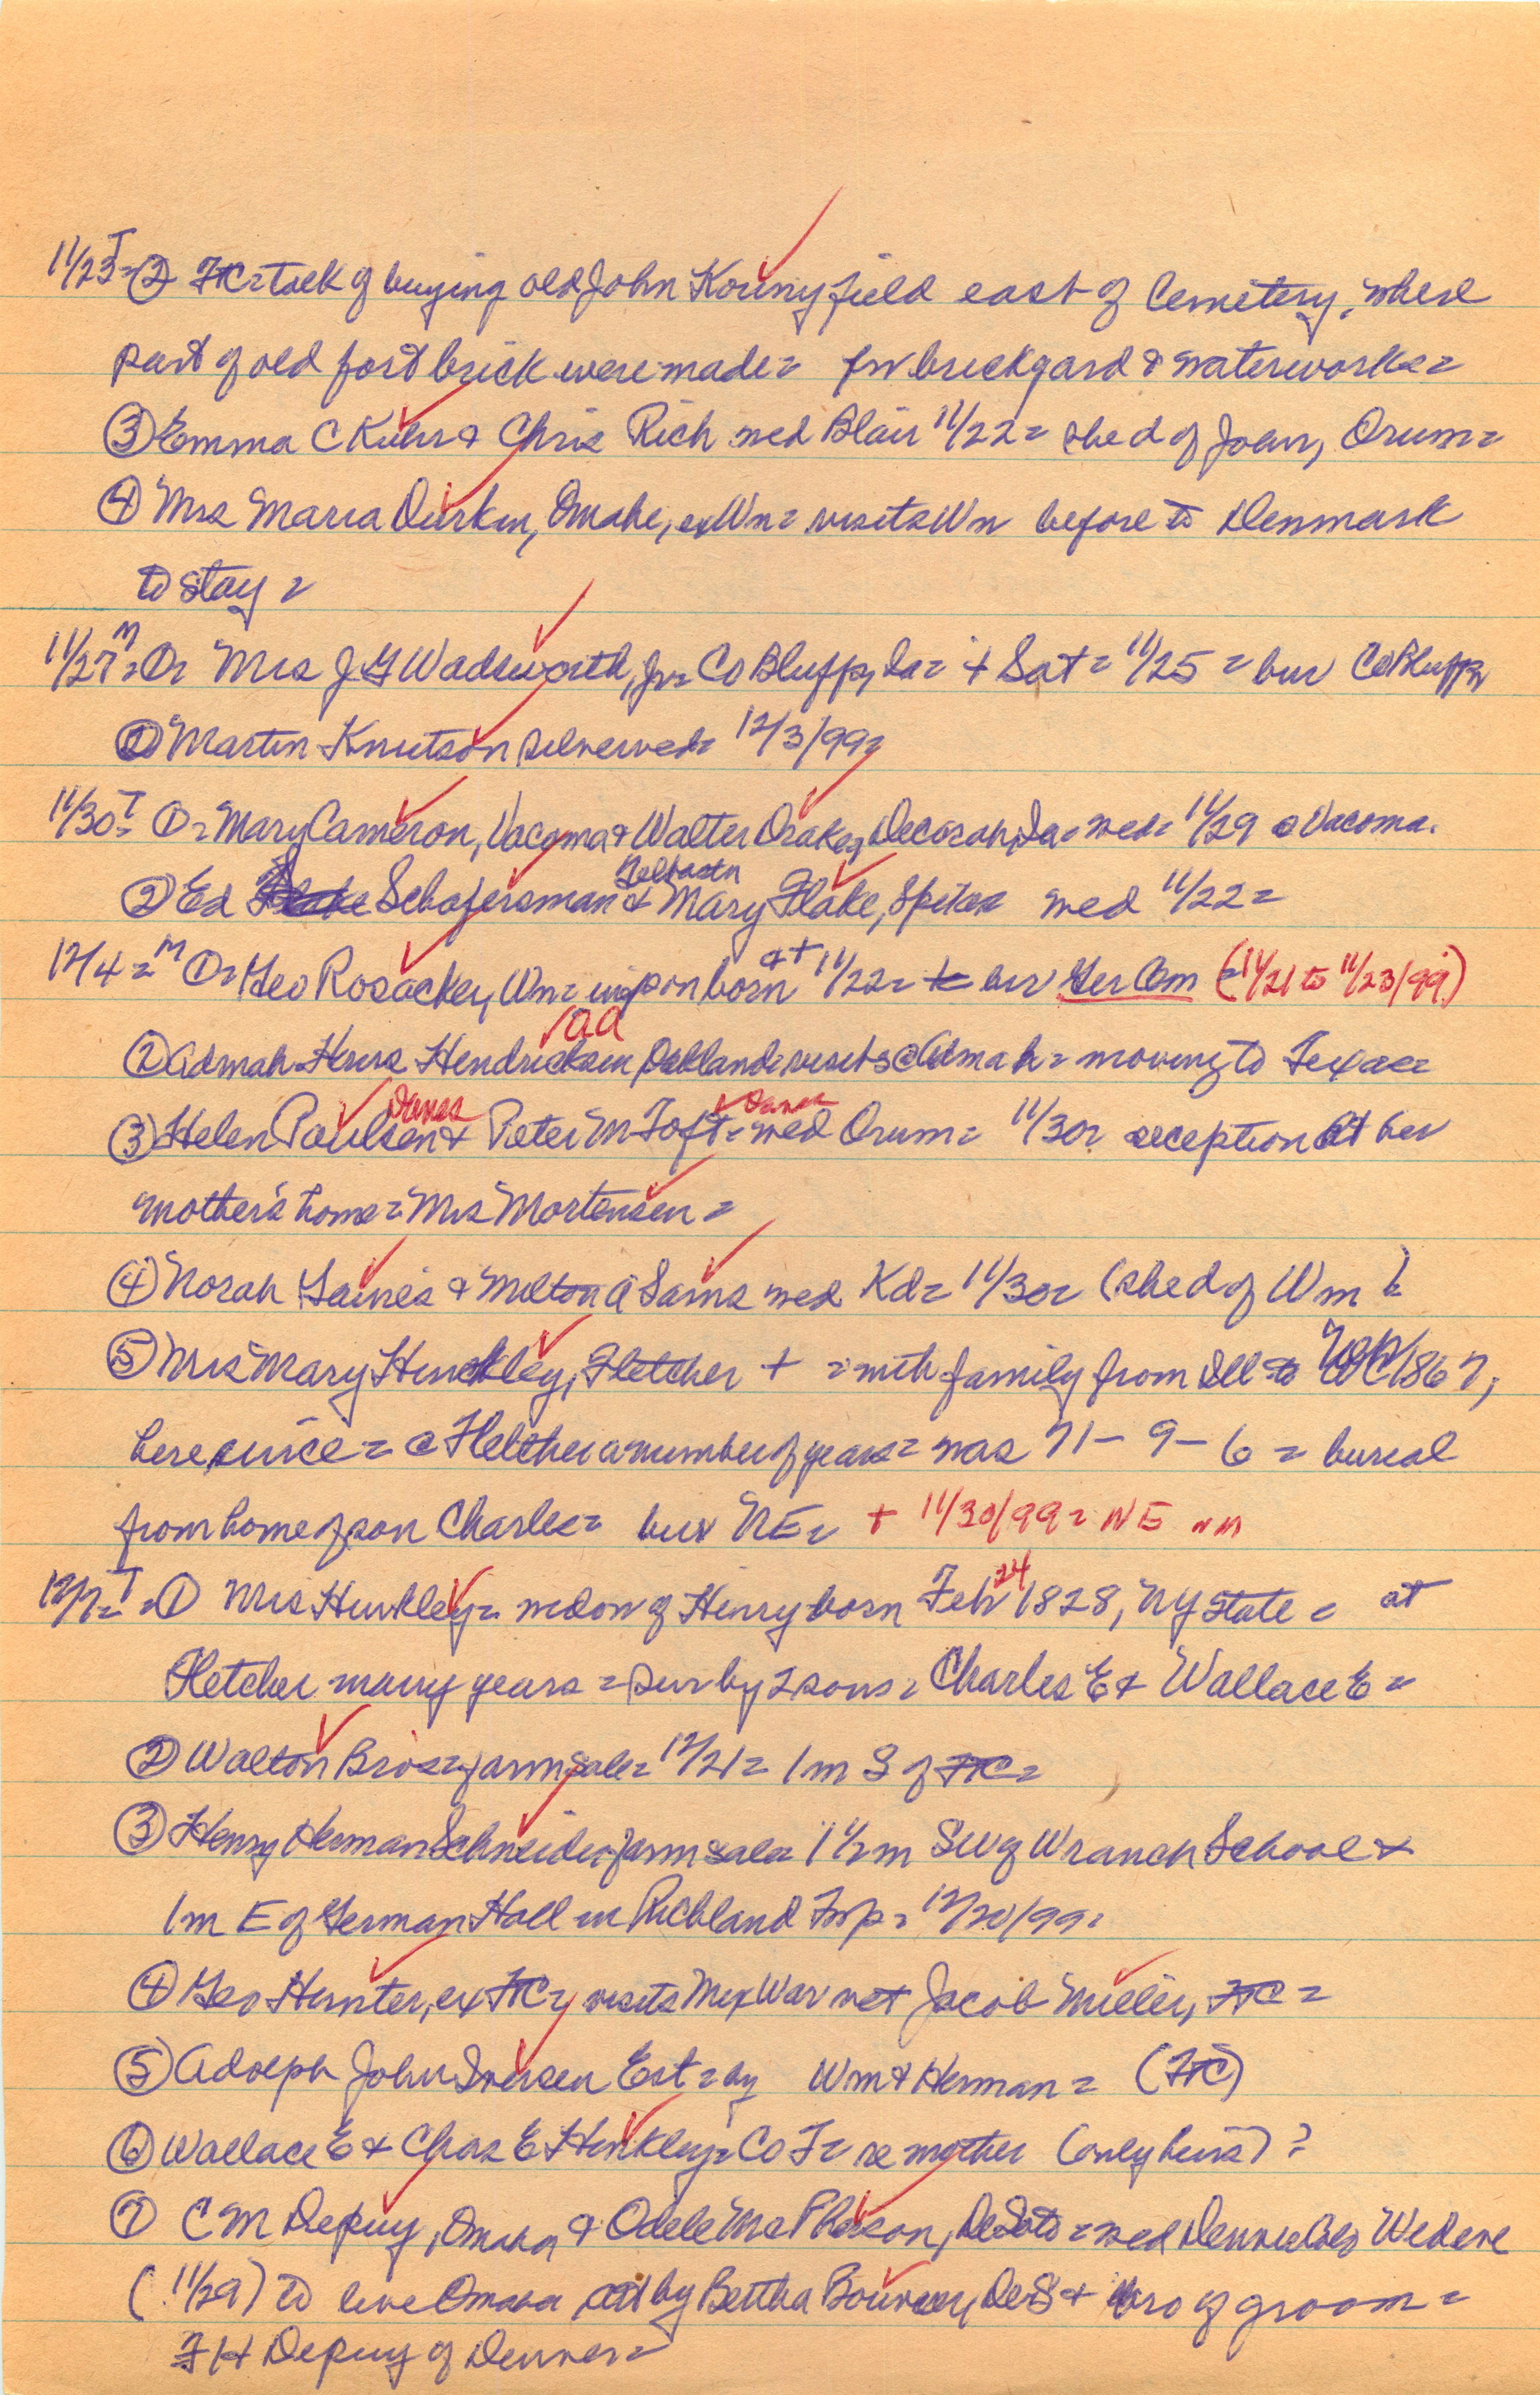 11/23 T = ② FtC = talk of buying old John Kouny field east of Cemetery, where
part of old fort brick were made = for brickyard & waterworks =
③ Emma C Kuhr & Chris Rich wed Blair 11/22 = she d of Joan, Orum =
④ Mrs Maria Durkin, Omaha, ex Wn = visits Wn before to Denmark
to stay =
11/27 M = ① = Mrs J G Wadsworth, Jr = Co Bluffs, Ia = + Sat = 11/25 = bur Co Bluffs
② Martin Knutson silverwed = 12/3/99 =
11/30 T = ① = Mary Cameron, Vacoma & Walter Drake, Decorah, Ia = wed = 11/29 @ Vacoma.
② Ed Schafersman & Mary Flake, Spiker wed 11/22 =
12/4 = M ① = Geo Rosacker, Wn = inf son born & + 11/22 = bur Ger Cem (= 11/21 to 11/23/99)
aa
② Admah = Hendricksen, visits @ Admah = moving to Texas =
Danes Danes
③ Helen Paulsen & Peter M Toft = wed Orum = 11/30 = reception at her
mother's home = Mrs Mortensen =
④ Norah Gaines & Milton A Sams wed Kd = 11/30 = (she d of Wm)
⑤ Mrs Mary Hinckley, Fletcher + = with family from Ill to 1867,
here since = @ Fletcher a number of years = was 71 - 9 - 6 = burial
from home of son Charles = bur NE = + 11/30/99 = NE
12/7 = T = ① Mrs Hinkley = widow of Henry born Feb 24 1828, NY State = at
Fletcher many years = sur by 2 sons = Charles E & Wallace E =
② Walton Bros = farm sale = 12/21 = 1 m S of FtC =
③ Henry Herman Schneider farm sale = 1 1/2 m SW of Wranch School &
1 m E of German Hall in Richland Twp = 12/20/99 =
④ Geo Hunter, ex FtC = visits Mex War vet Jacob Miller, FtC =
⑤ Adolph John Iversen Est = by Wm & Herman = (FtC)
⑥ Wallace E & Chas E Hinkley = Co T = re mother (only heirs)?
⑦ C M Depuy, Omaha & Odele McPherson, DeSoto = wed Denver Colo Wed eve
(11/29) to live Omaha att by Bertha DeS & bro of groom =
F H Depuy of Denver =